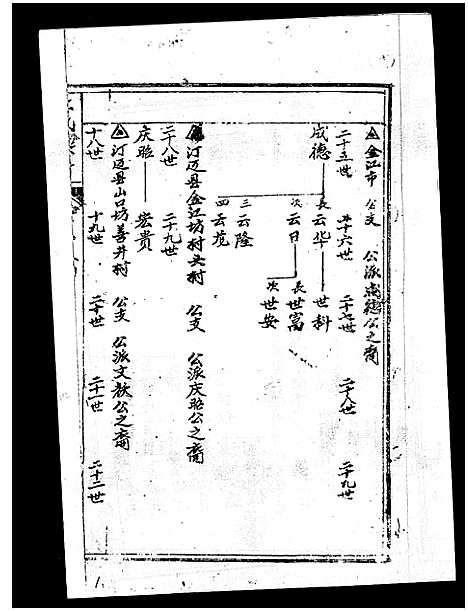 金江市 公支 公派成德公之裔
二十五世 二十六世 二十七世 二十八世 二十九世
成德
長云华 世科
次云日 長世富
次世安
三云隆
四云范
汀迈县金江坊村头村 公支 公派庆昭公之裔
二十八世 二十九世
庆昭 宏贵
汀迈县山口坊善井村 公支 公派文教公之裔
十八世 十九世 二十世 二十一世 二十二世